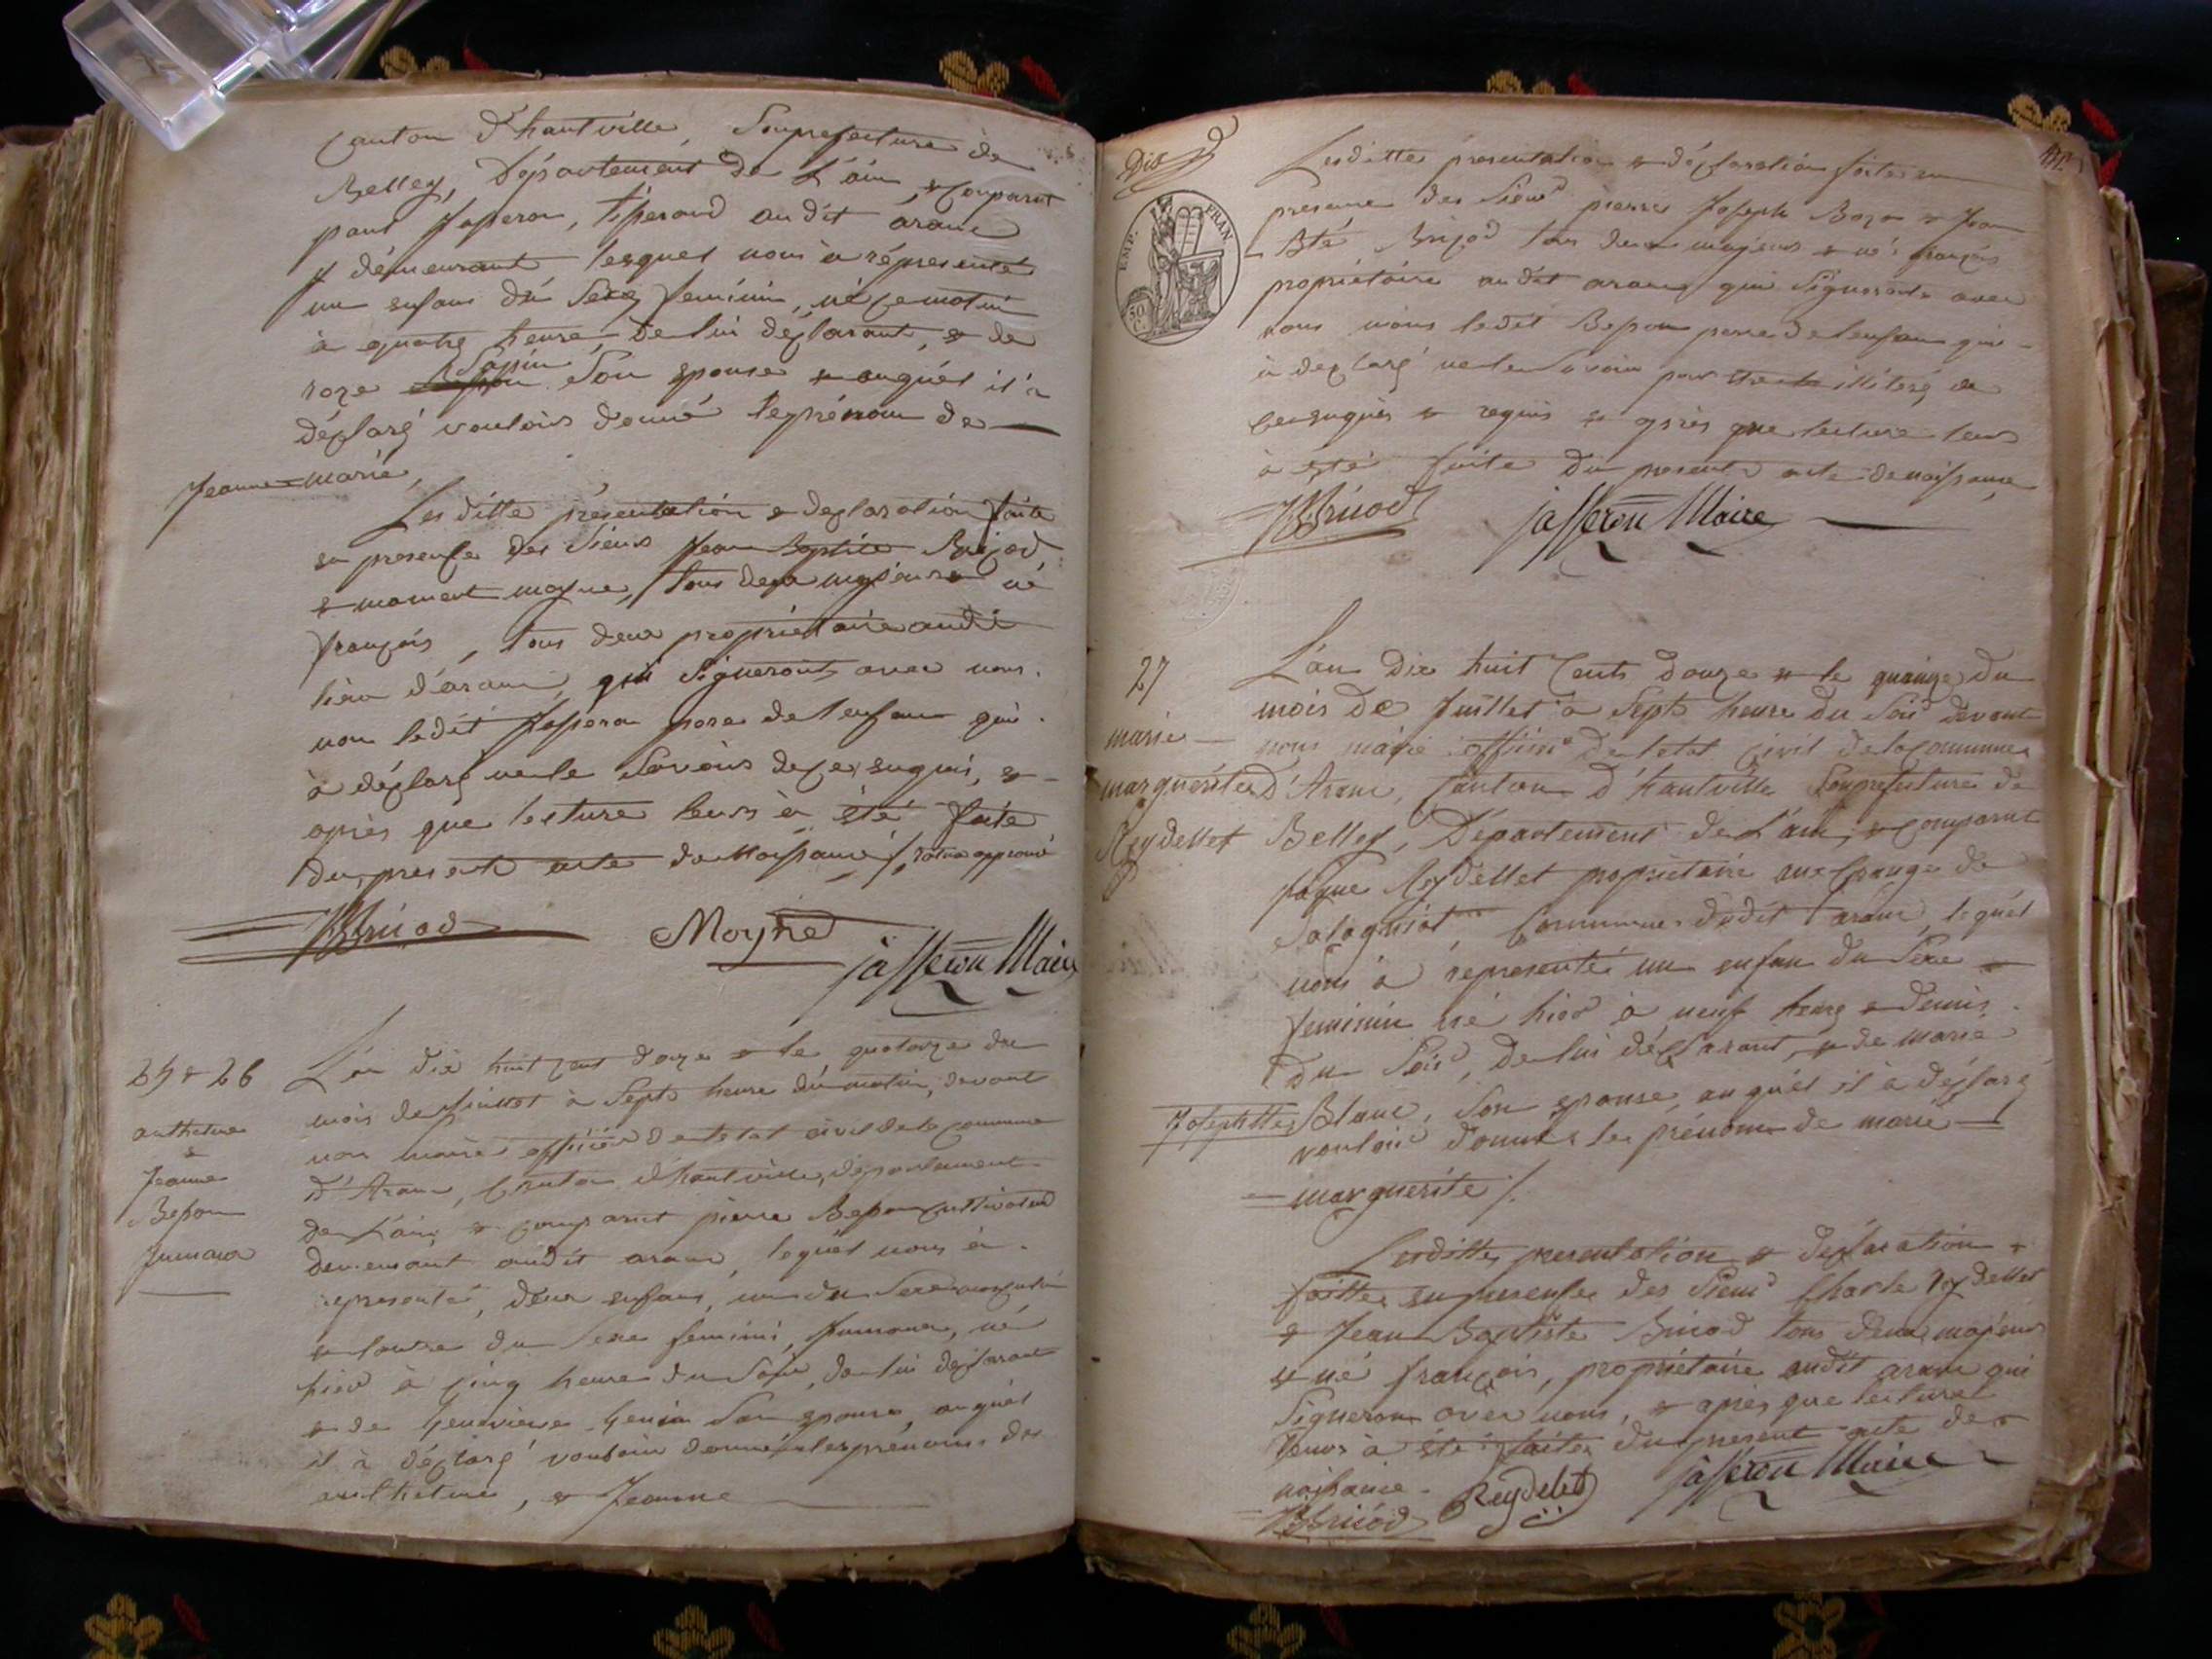 Canton d'hautville, Souprefecture de
Belley, Département de L'ain, & Comparut
paul Josseron, tisserand audit aranc
y démeurant, lesquel nous à répresenté
un enfant dú Sexe feminin, né ce matin
à quatre heure, de lui déclarant, & de
roze Sapin Son epouse & auquél il à
déclaré vouloir donné le prénom de —
Jeanne=marie,
Les ditte présentation & declaration faite
en presence des Sieurs Jean Baptiste Briod
& moment moyne, tous deux majeurs & né
françois, tous deux propriétaire audit
lieu d'aranc, qui Signeront avec nous.
non ledit Josseron pere de l'enfant qui
à déclaré ne le Savoir de ce enquis, &
après que lecture leurs à été faite
du present acte de Naissance /. rature approuvé
JBBriod Moyne jasseron Maire
25 & 26
anthelme
&
Jeanne
Besson
Jumaux
L'an dix huit cent douze & le quatorze du
mois de Juillet à Sept heure du matin, devant
nous maire officier de letat civil de la commune
d'Aranc, Canton d'hautville, département
de L'ain, & comparut pierre Besson cultivateur
demeurant audit aranc, lequel nous à
représenté, deux enfans, un du Sexe masculin
& lautre du Sexe feminin, Jumaux, né
hier à cinq heure du Soir, de lui déclarant
& de Genevieve Genin Son epouse, auquél
il à déclaré vouloir donné les prénoms de
anthelme, & Jeanne
Dio
EMP. FRAN
50 C.
Lesditte presentation & déclaration faite en
presence des Sieur pierre Joseph Bozon & Jean
Bte Briod tous deux majeurs & né françois
propriétaire audit aranc qui Signeront avec
nous non ledit Besson pere de lenfan qui
à declaré ne le Savoir pour illiteré de
ce enquis & requis & après que lecture leurs
à été faite du present acte de naissance
JBBriod jasseron Maire
27
marie
marguerite
Reydellet
L'an dix huit Cents douze & le quinze du
mois de Juillet à Sept heure du Soir devant
nous maire officier de letat Civil de la Commune
d'Aranc, Canton d'hautville Souprefecture de
Belley, Département de L'ain, & comparut
Reydellet propriétaire aux Grange de
Commune dudit aranc, lequél
nous à representé un enfan du Sexe
feminin né hier à neuf heure & demis
du Soir, de lui déclarant, & de marie
Josephtte Blanc, Son epouse, auquél il à déclaré
vouloir donner les prénom de marie
= marguerite /.
Lesditte presentation & déclaration
faitte en presence des Sieur Charle Reydellet
& Jean Baptiste Briod tous deux majeurs
& né françois, propriétaire audit aranc qui
Signeron avec nous, & après que lecture
leurs à été faite du present acte de
naissance. Reydelet jasseron Maire
JBBriod